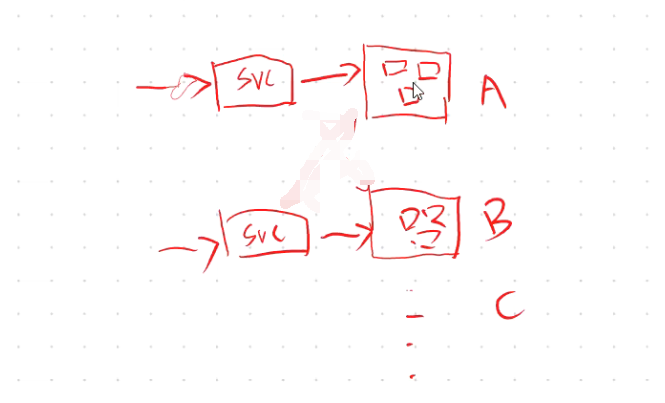 SVC
A
SVC
B
C